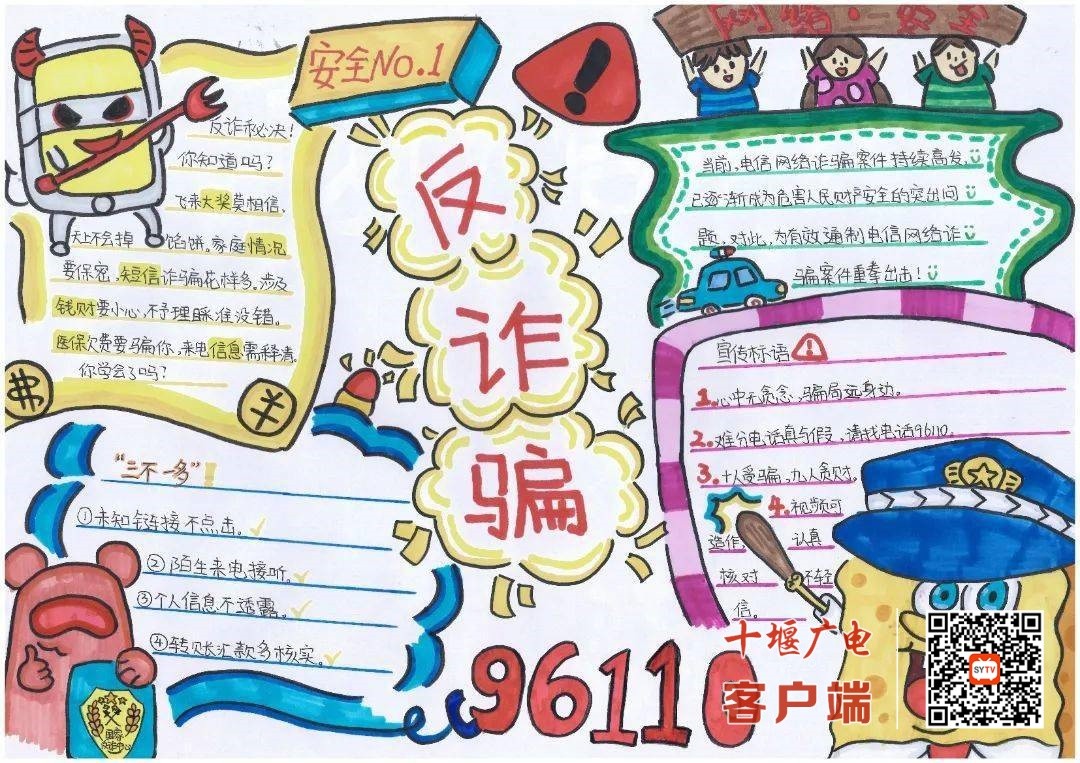 安全No.1
网骗·安全
反诈秘决!
你知道吗?
飞来大奖莫相信,
天上不会掉 馅饼。家庭情况
要保密,短信诈骗花样多。涉及
钱财要小心,不予理睬准没错。
医保欠费要骗你,来电信息需释清。
你学会了吗?
反
诈
骗
当前,电信网络诈骗案件持续高发,
已逐渐成为危害人民财产安全的突出问
题,对此,为有效遏制电信网络诈
骗案件重拳出击!
宣传标语
1.心中无贪念,骗局远身边。
2.难分电话真与假,请找电话96110。
3.十人受骗,九人贪财。
4.视频可
造作, 认真
核对 不轻
信。
"三不一多"
①未知链接不点击。
②陌生来电接听。
③个人信息不透露。
④转账汇款多核实。
国家
反诈中心
96110
十堰广电
客户端
SYTV